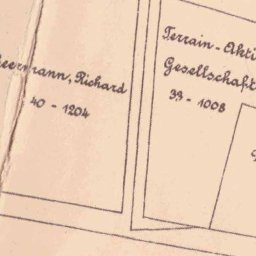 Richard
40 - 1204
Terrain - Akti
Gesellschaft
39 - 1008